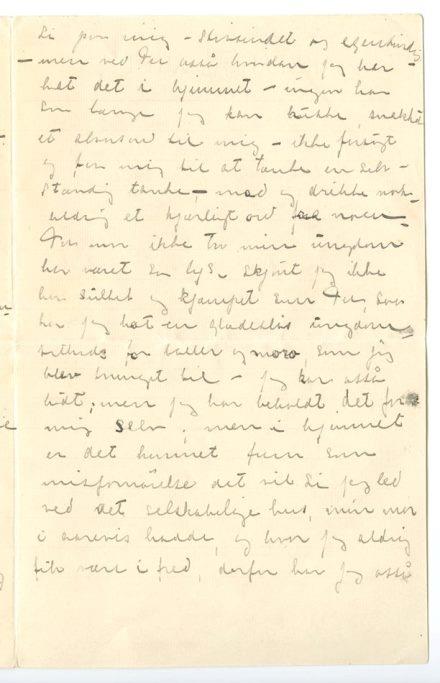 Di paa mig – stivsindet og egensindig
– men ved Du også hvordan jeg har
hat det i hjemmet – ingen har
saa længe jeg kan huske, snakket
et alvorsord til mig – ikke forsøgt
og faa mig til at tænke en selv-
stændig tanke, – mad og drikke nok –
aldrig et kjærligt ord fra noen –
Du maa ikke tro min ungdom
har været saa lys, skjønt jeg ikke
har sultet og kjæmpet som Du, saa
har jeg hat en gledesløs ungdom
for baller og moro som jeg
blev tvunget til – jeg har også
lidt; men jeg har beholdt det for
mig selv, men i hjemmet
er det kommet frem som
misfornøielse det vil si jeg led
ved det selskabelige hus, min mor
i aarevis hadde, og hvor jeg aldrig
fik være i fred, derfor har jeg også